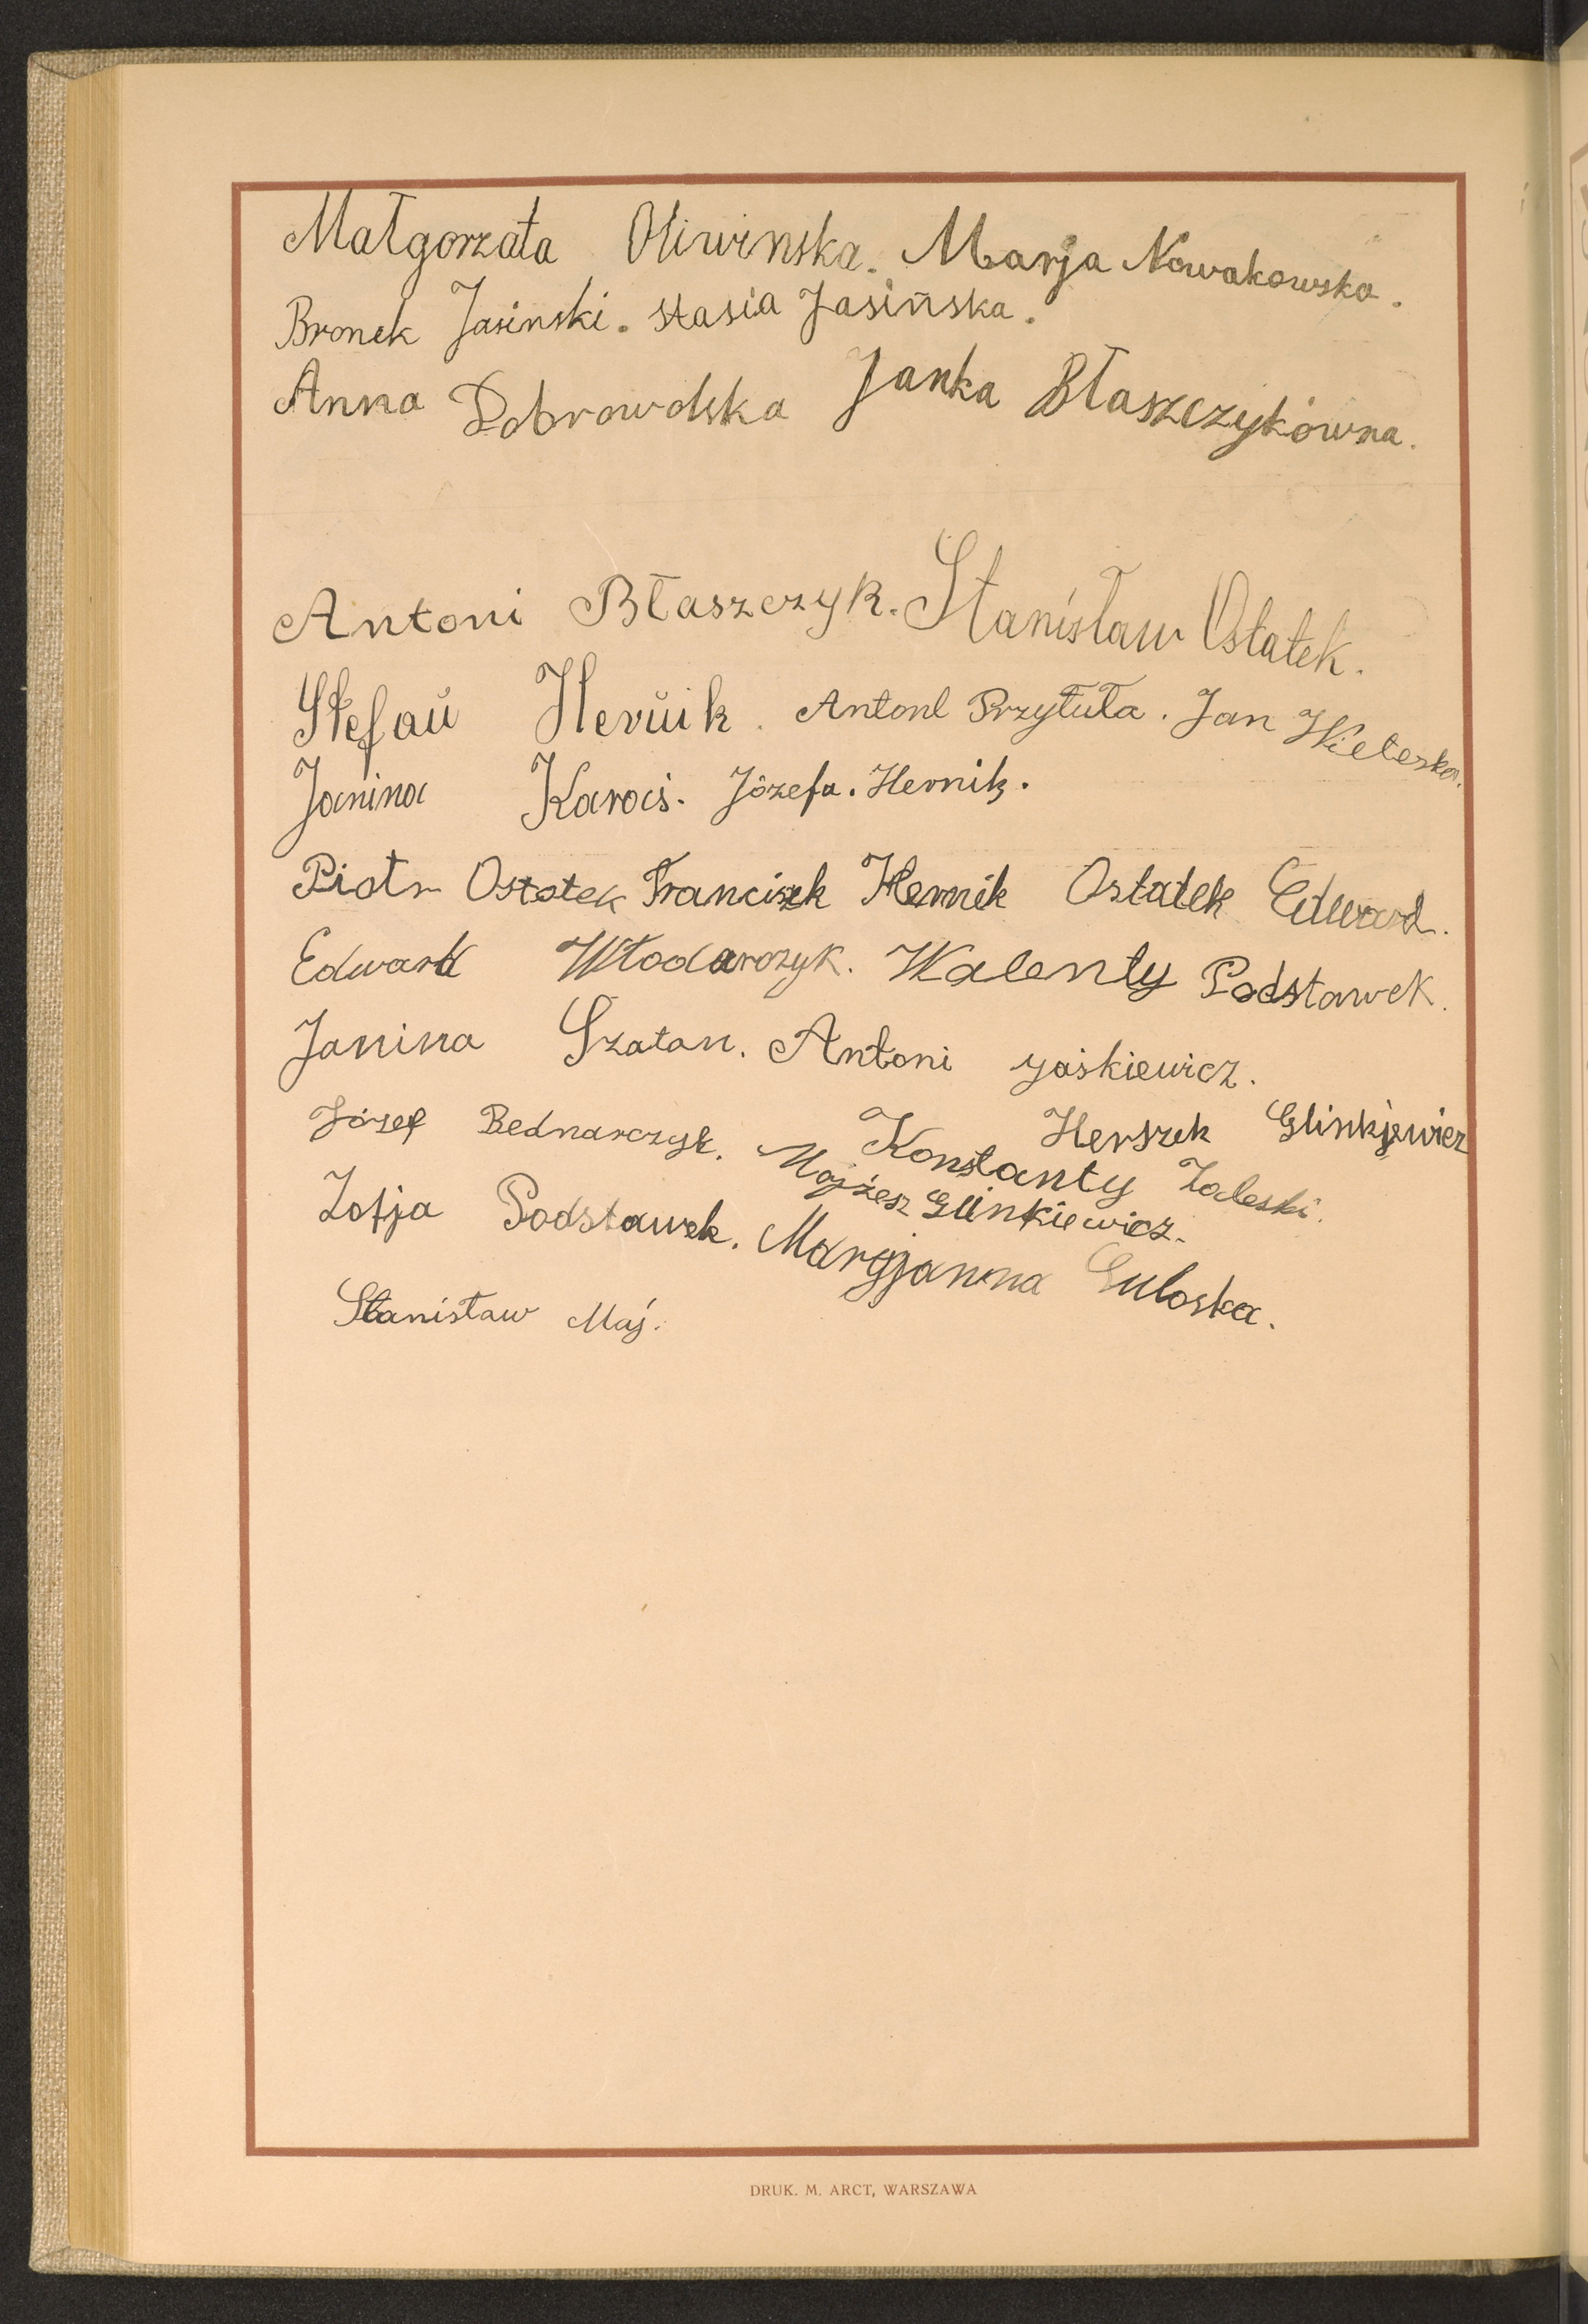 Małgorzata Oliwinska. Marja Nowakowska.
Bronek Jasinski. Stasia Jasińska.
Anna Dobrowolska Janka Błaszczykówna.
Antoni Błaszczyk. Stanisław Ostatek.
Stefan Hernik. Antoni Przytuła. Jan Wieteska.
Janina Karaś. Józefa. Hernik.
Piotr Ostatek Franciszek Hernik Ostatek Edward.
Edward Włodarczyk. Walenty Podstawek.
Janina Szatan. Antoni Jaśkiewicz.
Józef Bednarczyk. Herszek Glinkjewicz
Konstanty Zaleski.
Mojżesz Glinkiewicz.
Zofja Podstawek. Maryjanna
Stanisław Maj.
DRUK. M. ARCT, WARSZAWA